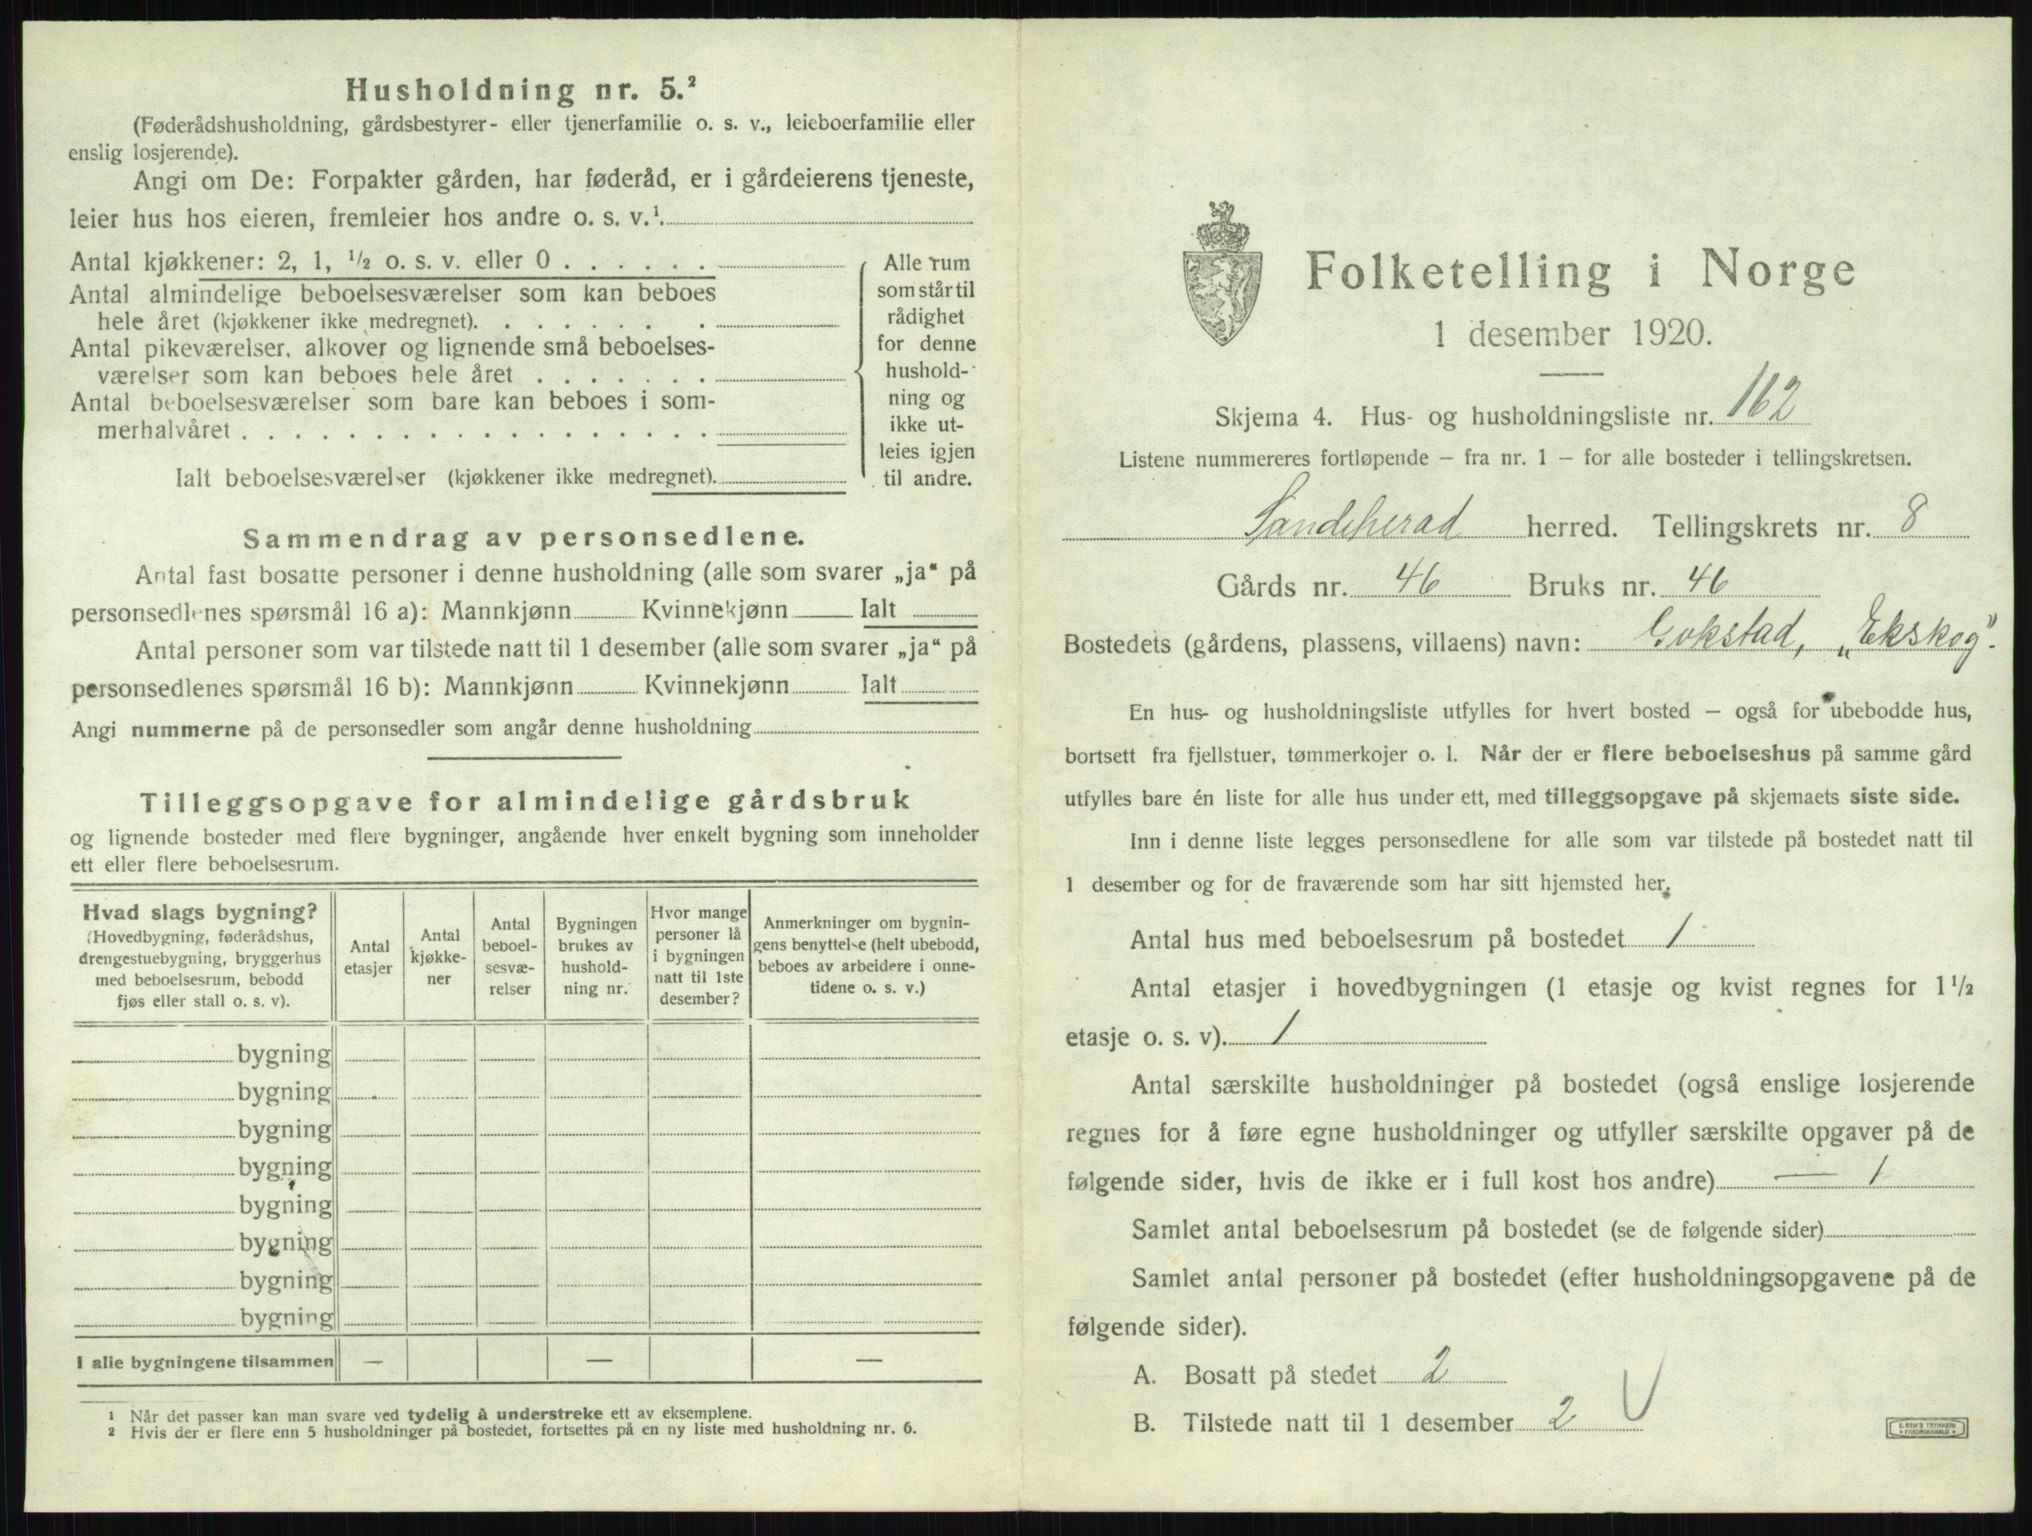 Husholdning nr. 5.²
(Føderådshusholdning, gårdsbestyrer- eller tjenerfamilie o. s. v., leieboerfamilie eller
enslig losjerende).
Angi om De: Forpakter gården, har føderåd, er i gårdeierens tjeneste,
leier hus hos eieren, fremleier hos andre o. s. v.¹.
Antal kjøkkener: 2, 1, ½ o. s. v. eller 0 . . . . . .
Antal almindelige beboelsesværelser som kan beboes
hele året (kjøkkener ikke medregnet). . . . . . . .
Antal pikeværelser, alkover og lignende små beboelses-
værelser som kan beboes hele året . . . . . . .
Antal beboelsesværelser som bare kan beboes i som-
merhalvåret . . . . . . . . . . . . . . . . . .
Ialt beboelsesværelser (kjøkkener ikke medregnet).
Alle rum
som står til
rådighet
for denne
hushold-
ning og
ikke ut-
leies igjen
til andre.
Sammendrag av personsedlene.
Antal fast bosatte personer i denne husholdning (alle som svarer „ja“ på
personsedlenes spørsmål 16 a): Mannkjønn Kvinnekjønn Ialt
Antal personer som var tilstede natt til 1 desember (alle som svarer „ja“ på
personsedlenes spørsmål 16 b): Mannkjønn Kvinnekjønn Ialt
Angi nummerne på de personsedler som angår denne husholdning
Tilleggsopgave for almindelige gårdsbruk
og lignende bosteder med flere bygninger, angående hver enkelt bygning som inneholder
ett eller flere beboelsesrum.
Hvad slags bygning?
(Hovedbygning, føderådshus,
drengestuebygning, bryggerhus
med beboelsesrum, bebodd
fjøs eller stall o. s. v).
Antal
etasjer
Antal
kjøkke-
ner
Antal
beboel-
sesvæ-
relser
Bygningen
brukes av
hushold-
ning nr.
Hvor mange
personer lå
i bygningen
natt til 1ste
desember?
Anmerkninger om bygnin-
gens benyttelse (helt ubebodd,
beboes av arbeidere i onne-
tidene o. s. v.)
bygning
bygning
bygning
bygning
bygning
bygning
bygning
bygning
I alle bygningene tilsammen — — —
1 Når det passer kan man svare ved tydelig å understreke ett av eksemplene.
2 Hvis der er flere enn 5 husholdninger på bostedet, fortsettes på en ny liste med husholdning nr. 6.
Folketelling i Norge
1 desember 1920.
Skjema 4. Hus- og husholdningsliste nr. 162
Listene nummereres fortløpende – fra nr. 1 – for alle bosteder i tellingskretsen.
Sandeherad herred. Tellingskrets nr. 8
Gårds nr. 46 Bruks nr. 46
Bostedets (gårdens, plassens, villaens) navn: Gokstad, „Ekskog“.
En hus- og husholdningsliste utfylles for hvert bosted – også for ubebodde hus,
bortsett fra fjellstuer, tømmerkojer o. l. Når der er flere beboelseshus på samme gård
utfylles bare én liste for alle hus under ett, med tilleggsopgave på skjemaets siste side.
Inn i denne liste legges personsedlene for alle som var tilstede på bostedet natt til
1 desember og for de fraværende som har sitt hjemsted her.
Antal hus med beboelsesrum på bostedet 1
Antal etasjer i hovedbygningen (1 etasje og kvist regnes for 1½
etasje o. s. v). 1
Antal særskilte husholdninger på bostedet (også enslige losjerende
regnes for å føre egne husholdninger og utfyller særskilte opgaver på de
følgende sider, hvis de ikke er i full kost hos andre) — 1
Samlet antal beboelsesrum på bostedet (se de følgende sider)
Samlet antal personer på bostedet (efter husholdningsopgavene på de
følgende sider).
A. Bosatt på stedet 2
B. Tilstede natt til 1 desember 2